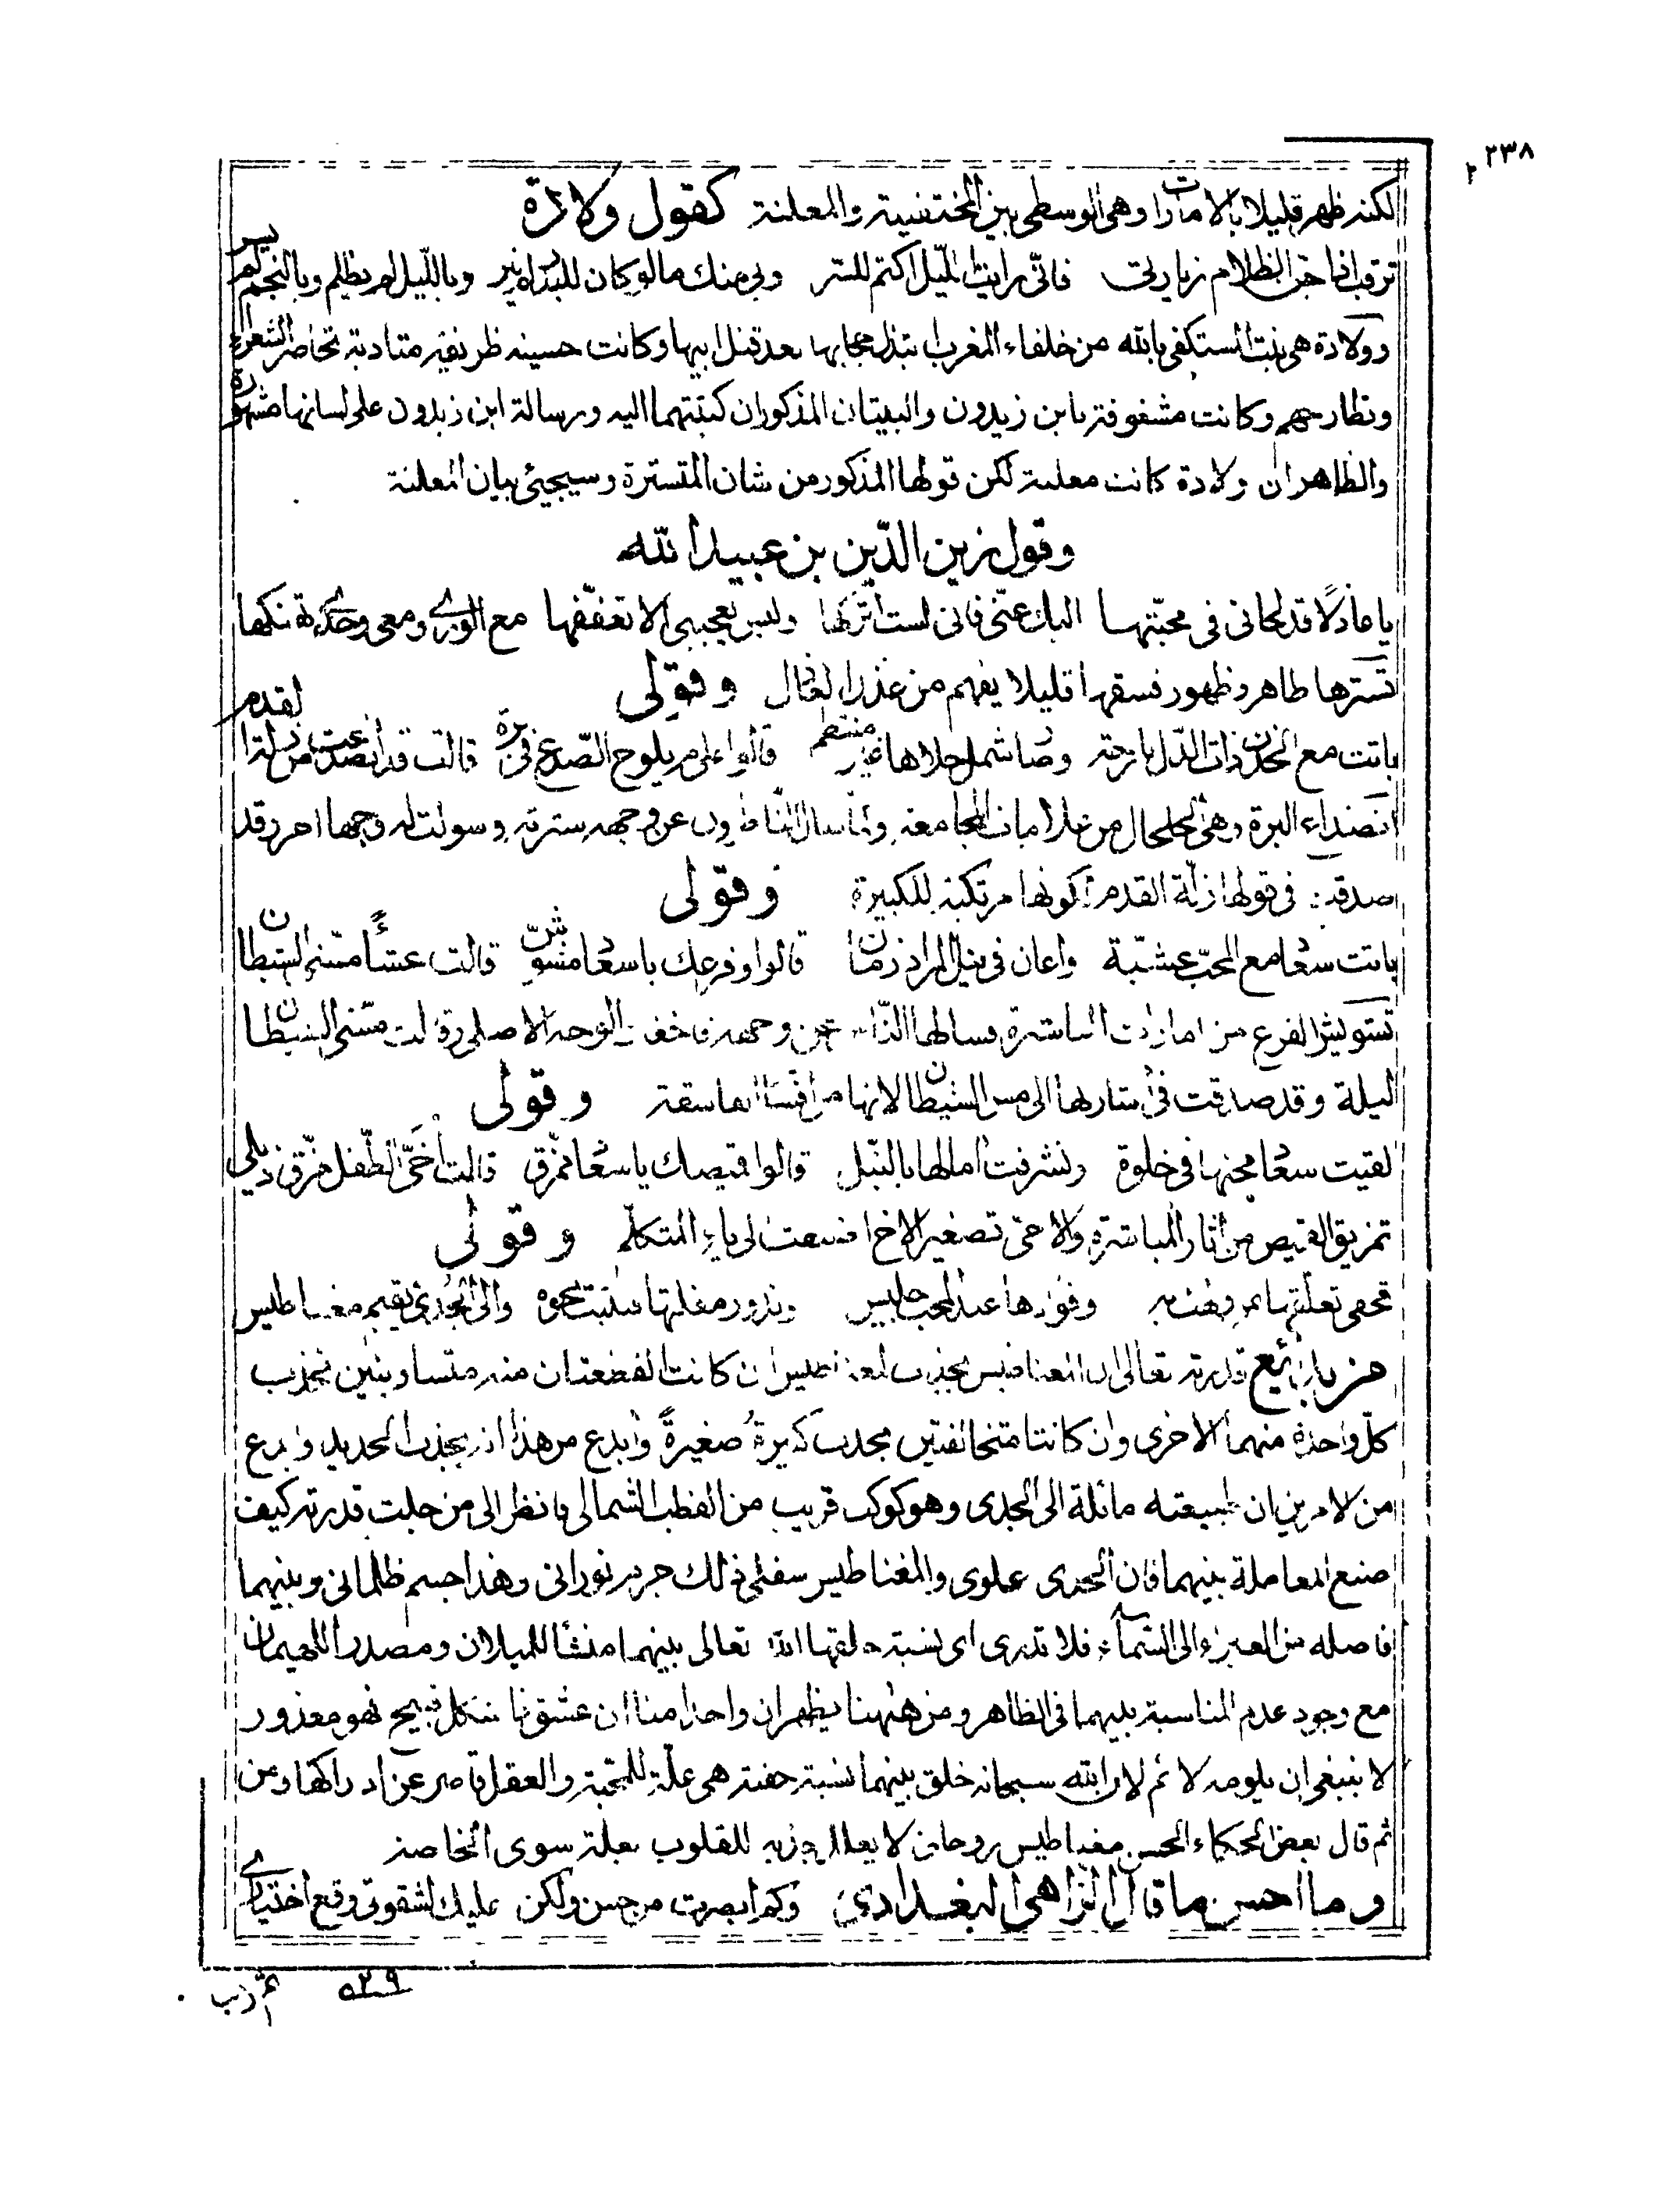 ٢٣٨
لكنه ظهر قليلا بالامارات وهي الوسطى بين المختفية والمعلنة كقول ولادة
ترقب اذا جن الظلام زيارتي فاني رايت الليل اكتم للستر وبي منك ما لو كان للبدر لم ينر وبالليل لم يظلم وبالنجم لم يسر
وولادة هي بنت المستكفي بالله من خلفاء المغرب ابتذل حجابها بعد قتل ابيها وكانت حسينه ظريفة متادبة تحاضر الشعراء
وتطارحهم وكانت مشغوفة بابن زيدون والبيتان المذكوران كتبتهما اليه ورسالة ابن زيدون على لسانها مشهورة
والظاهر ان ولادة كانت معلنة لكن قولها المذكور من شان المتسترة وسيجيئ بيان المعلنة
وقول زين الدين بن عبيد الله
يا عاذلًا قد لحاني في محبتها اليك عني فاني لست اتركها وليس يعجبني الا تعففها مع الورى ومعي وحدي تهتكها
تسترها ظاهر وظهور فسقها قليلا يفهم من عذر العاذل وقولي
باتت مع الخدن ذات الدل بارحة وصار شمل حلاها غير منتظم قالوا على م يلوح الصدع في برة قالت قد انصدعت من زلة القدم
انصداع البرة وهي الخلخال من امارات المجامعة ولما سال الناظرون عن وجهه سترته وسولت له وجها اخر وقد
صدقت في قولها زلة القدم لكونها مرتكبة للكبيرة وقولي
باتت سعاد مع المحب عشية واعان في نيل المراد زمان قالوا وفرعك يا سعاد مشوش قالت عشاء مسني الشيطان
تشويش الفرع من امارات المباشرة فسالها عن وجهه فاخفت الوجه الاصلي وقالت مسني الشيطان
الليلة وقد صدقت في اشارتها الى مس الشيطان لانها من النساء الفاسقة وقولي
لقيت سعاد محبها في خلوة وتشرفت امالها بالنيل قالوا قميصك يا سعاد ممزق قالت أخي الطفل مزق ذيلي
تمزيق القميص من اثار المباشرة والاخي تصغير الاخ اضيفت الى ياء المتكلم وقولي
تخفي تعلقها بمن وفؤادها عند المحب جليس وتدور مقلتها نحوه والى الجدي يقيم مغناطيس
من بدائع قدرته تعالى ان المغناطيس يجذب المغناطيس ان كانت القطعتان منه متساويتين تجذب
كل واحدة منهما الاخرى وان كانتا متخالفتين تجذب كبيرة صغيرةً وابدع من هذا انه يجذب الحديد وابدع
من الامرين ان طبيعته مائلة الى الجدي وهو كوكب قريب من القطب الشمالي فانظر الى من جلت قدرته كيف
صنع المعاملة بينهما فان الجدي علوي والمغناطيس سفلي ذلك جرم نوراني وهذا جسم ظلماني وبينهما
فاصله من الغبراء الى السماء فلا تدري اي نسبة خلقها الله تعالى بينهما منشأ للميلان ومصدرا للهيمان
مع وجود عدم المناسبة بينهما في الظاهر ومن ههنا يظهر ان واحدا منا ان عشق ذا شكل قبيح فهو معذور
لا ينبغي ان يلومه لائم لان الله سبحانه خلق بينهما نسبة خفية هي علة للمحبة والعقل قاصر عن ادراكها ومن
ثم قال بعض الحكماء الحسن مغناطيس روحاني لا يعلل جذبه للقلوب بعلة سوى الخاصة
وما احسن ما قال الزاهي البغدادي وكم ابصرت من حسن ولكن عليك لشقوتي وقع اختياري
٥٢٩